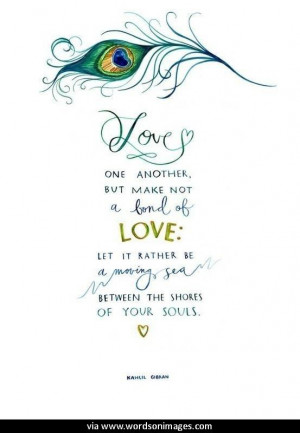 Love
ONE ANOTHER,
BUT MAKE NOT
a bond of
LOVE:
LET IT RATHER BE
a moving sea
BETWEEN THE SHORES
OF YOUR SOULS.
KAHLIL GIBRAN
via www.wordsonimages.com